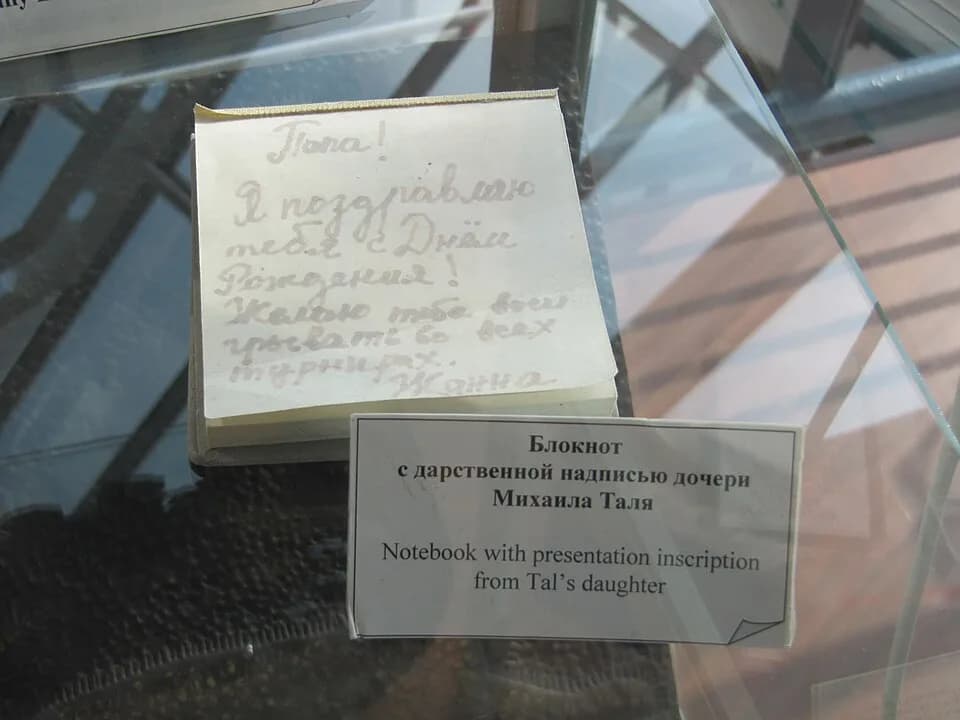 Папа!
Я поздравляю
тебя с Днём
Рождения!
Желаю тебе выи
грывать во всех
турнирах.
Жанна
Блокнот
с дарственной надписью дочери
Михаила Таля
Notebook with presentation inscription
from Tal's daughter